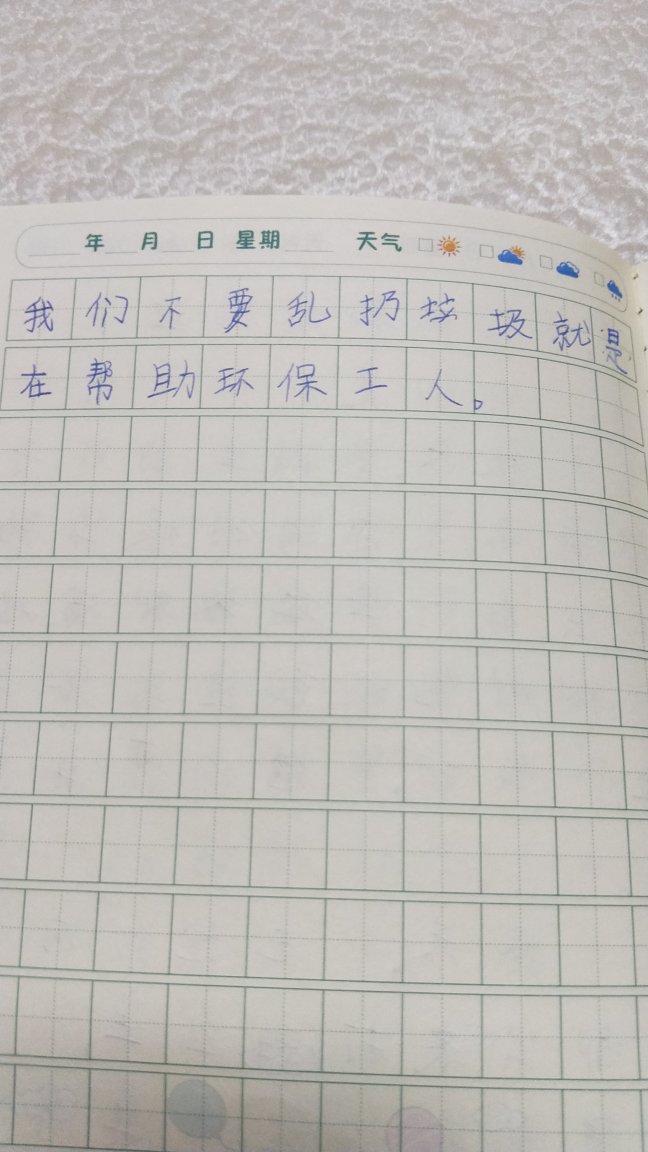 年 月 日 星期 天气
我们不要乱扔垃圾就是
在帮助环保工人。